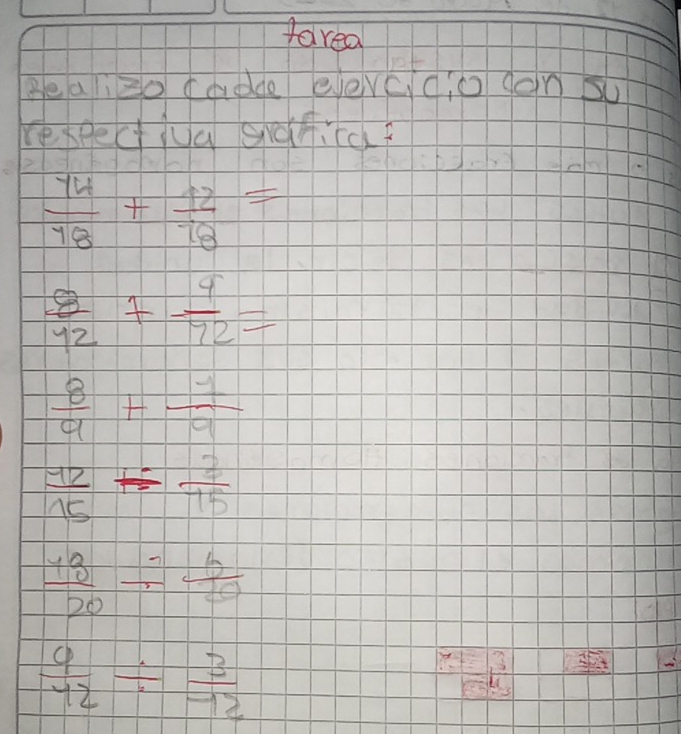 tarea
Realizo cada ejercicio con su
respectiva grafica:
14/18 + 12/18 =
8/12 + 9/12 =
8/9 + 1/9
12/15 ÷ 3/15
18/20 ÷ 6/20
9/12 ÷ 3/12